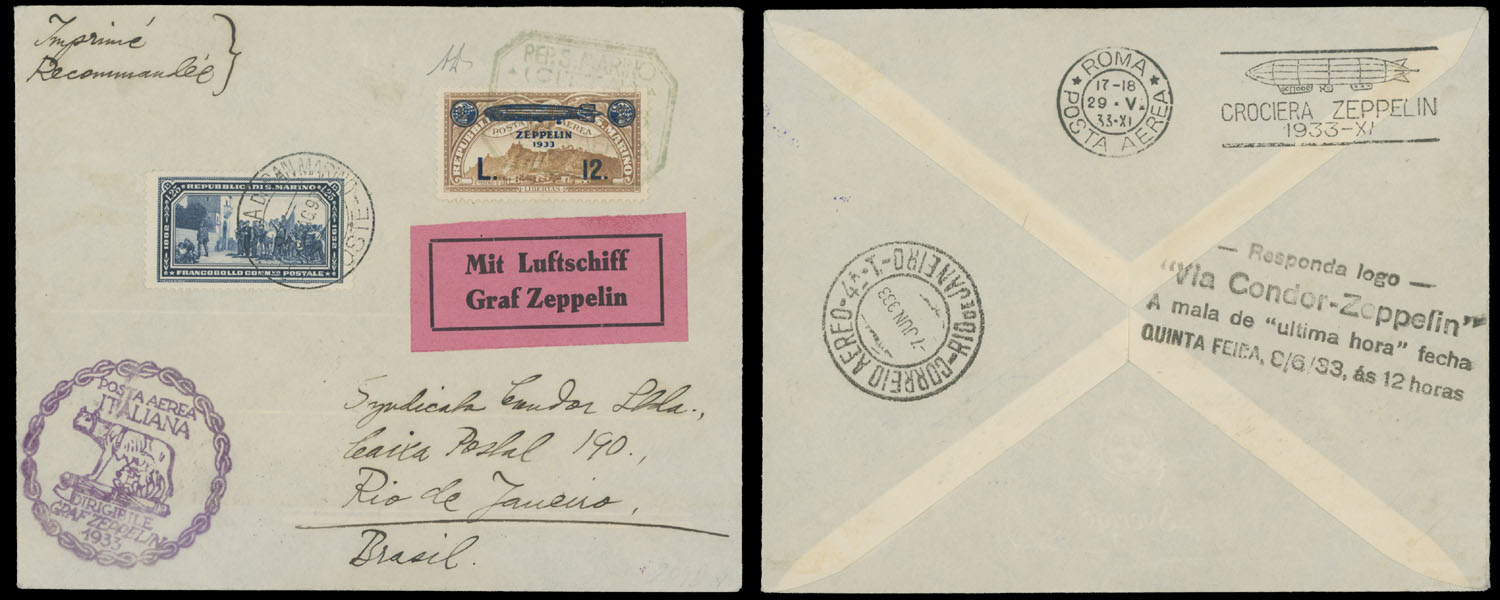 Imprimé
Recommandée
REP. S. MARINO
POSTA AEREA
REPUBBLICA DI S. MARINO
ZEPPELIN
1933
L. 12.
LIBERTAS
REPUBBLICA DI S. MARINO
1,25 1,25
FRANCOBOLLO COMM.VO POSTALE
Mit Luftschiff
Graf Zeppelin
POSTA AEREA
ITALIANA
DIRIGIBILE
GRAF ZEPPELIN
1933
Syndicato Condor Ltda.,
Caixa Postal 190.,
Rio de Janeiro,
Brasil.
ROMA
17-18
29·V.
33-XI
POSTA AEREA
CROCIERA ZEPPELIN
1933-XI
CORREIO AEREO-4ª-
-7 JUN 933
RIO DE JANEIRO
— Responda logo —
"Via Condor-Zeppelin"
A mala de "ultima hora" fecha
QUINTA FEIRA, 8/6/33, ás 12 horas